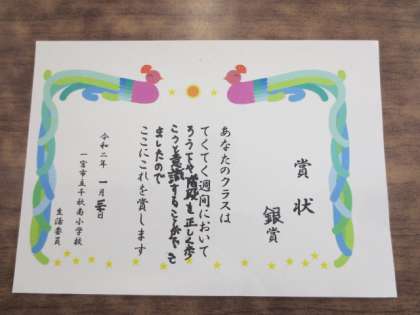 賞状
銀賞
あなたのクラスは
てくてく週間において
ろうかや階段を正しく歩
こうと意識することができ
ましたので
ここにこれを賞します
令和二年一月
一宮市立千秋南小学校
生活委員